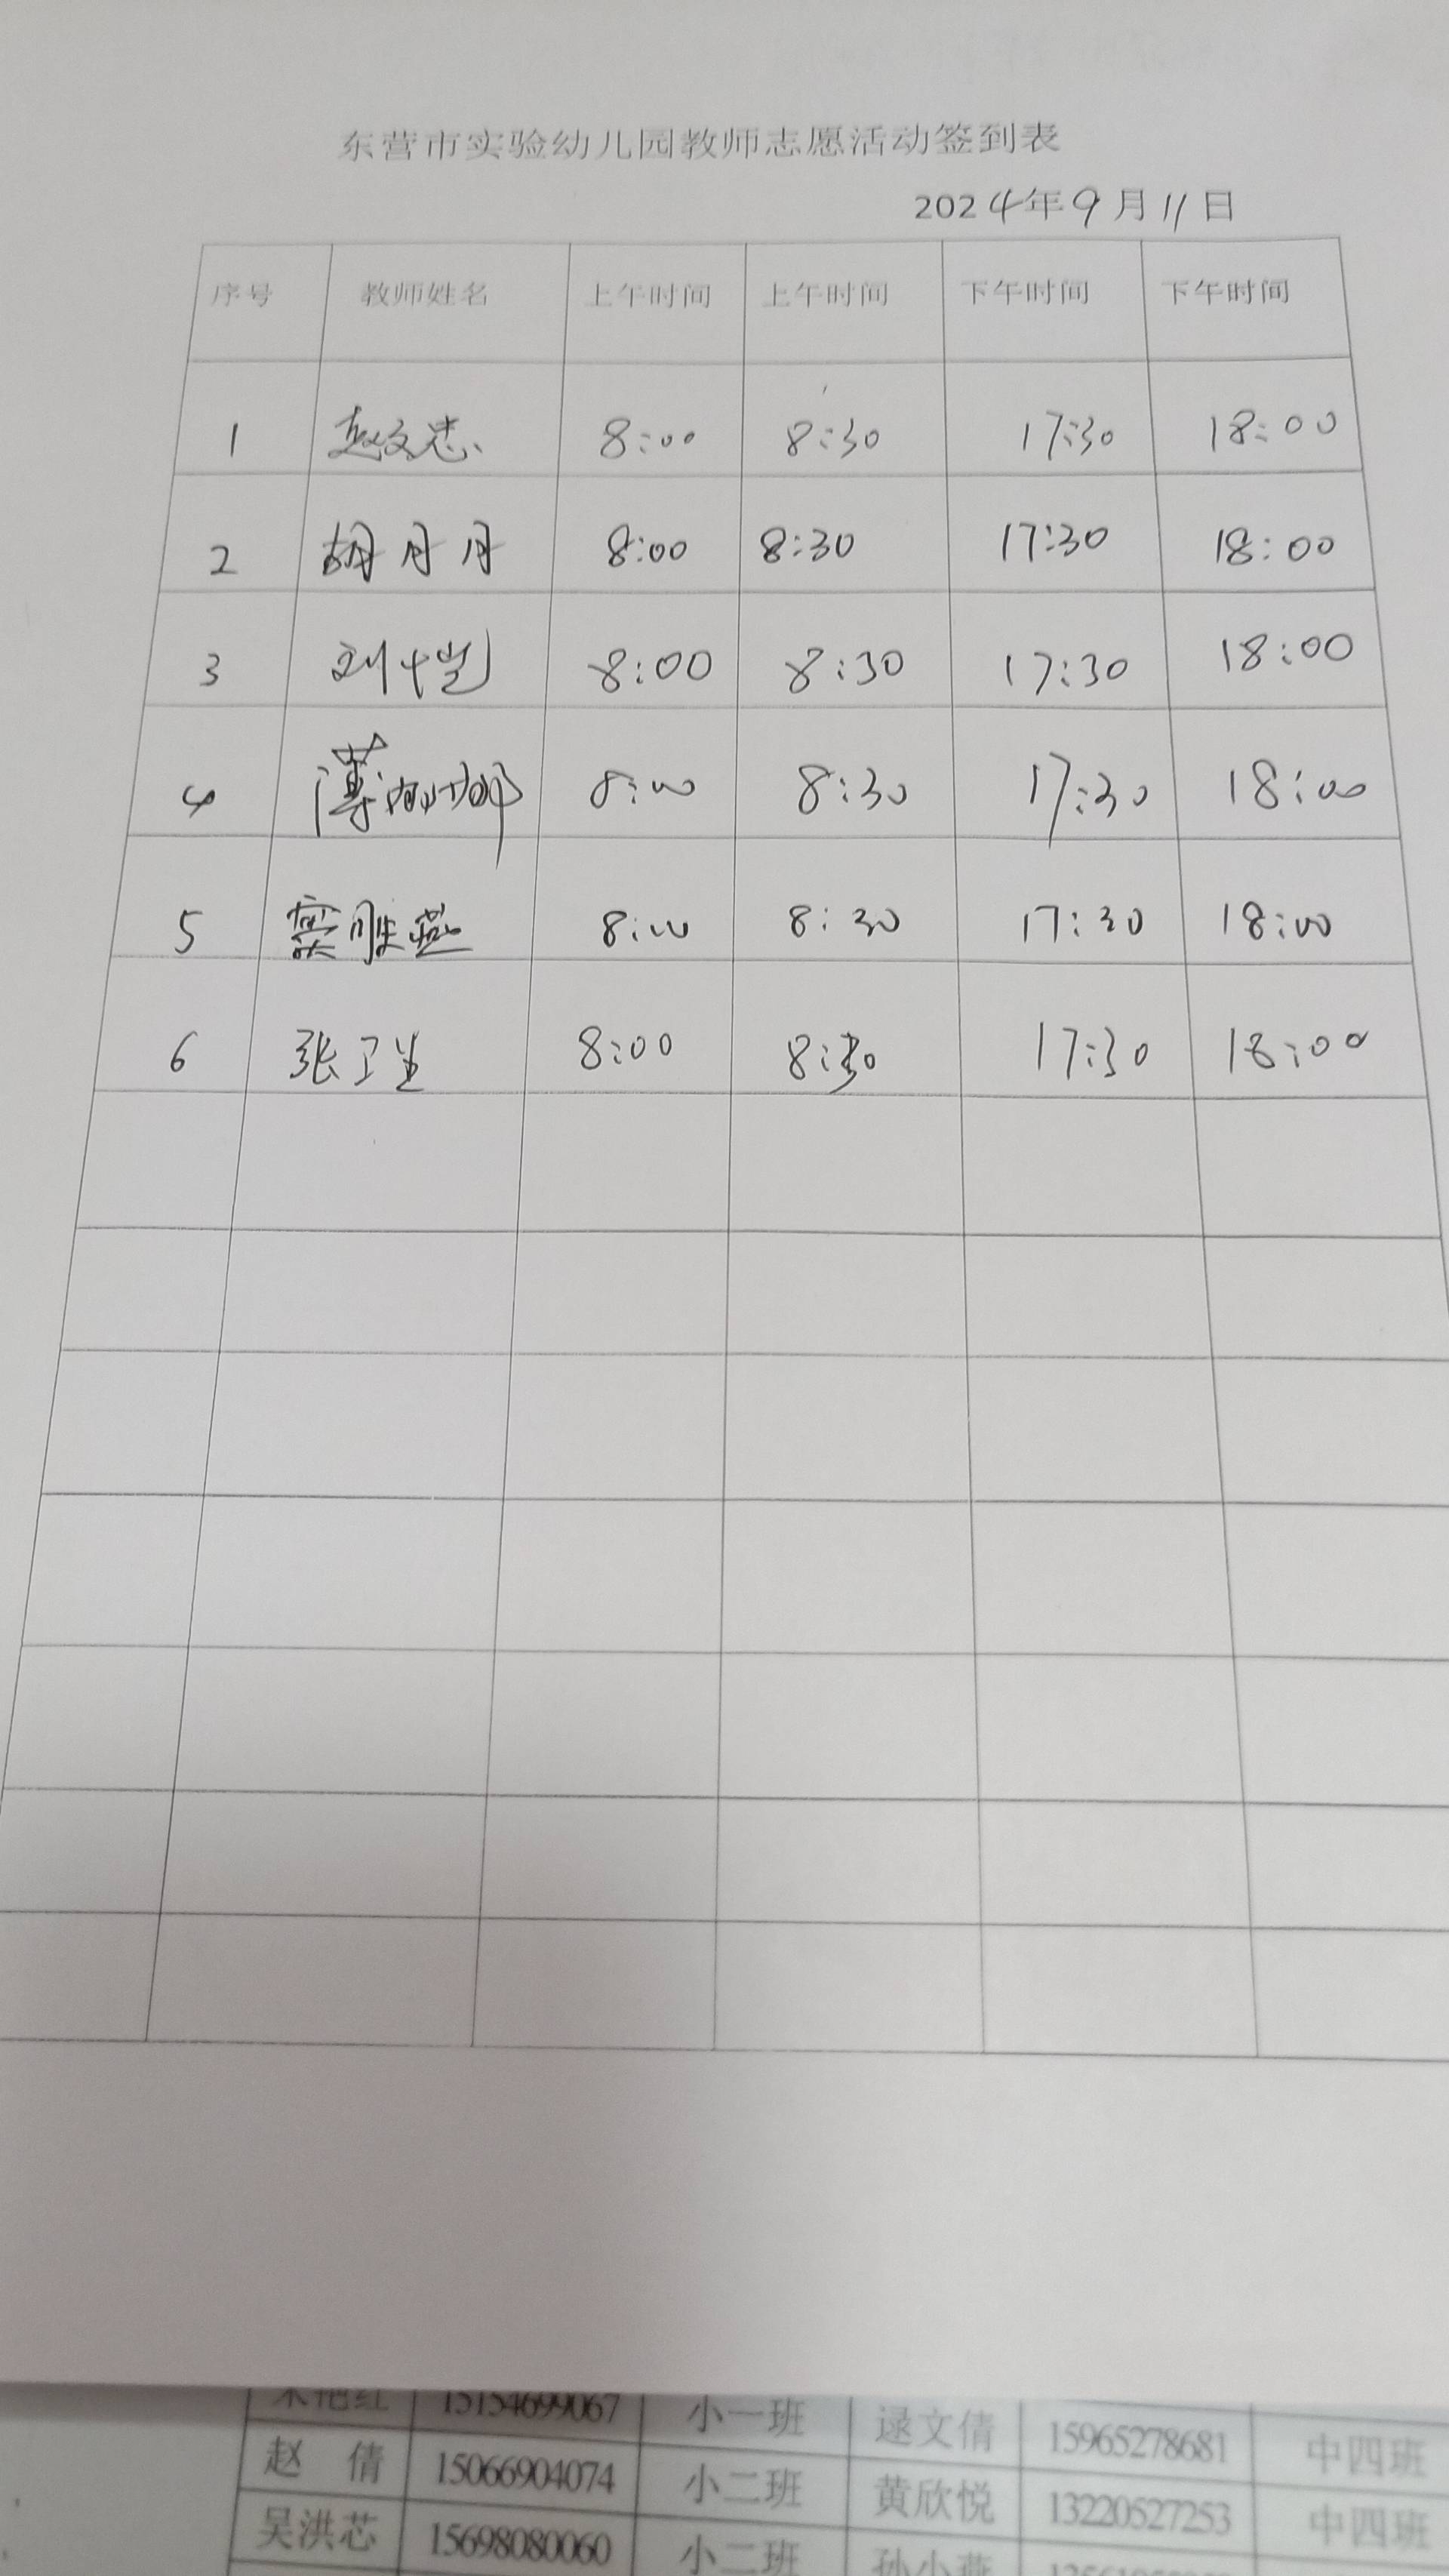 东营市实验幼儿园教师志愿活动签到表
2024年9月11日
序号 教师姓名 上午时间 上午时间 下午时间 下午时间
1 赵文忠 8:00 8:30 17:30 18:00
2 胡丹丹 8:00 8:30 17:30 18:00
3 刘 8:00 8:30 17:30 18:00
4 薄 8:00 8:30 17:30 18:00
5 窦胜燕 8:00 8:30 17:30 18:00
6 张卫生 8:00 8:30 17:30 18:00
15154699067 小一班 逯文倩 15965278681 中四班
赵 倩 15066904074 小二班 黄欣悦 13220527253 中四班
吴洪芯 15698080060 小二班 孙小燕